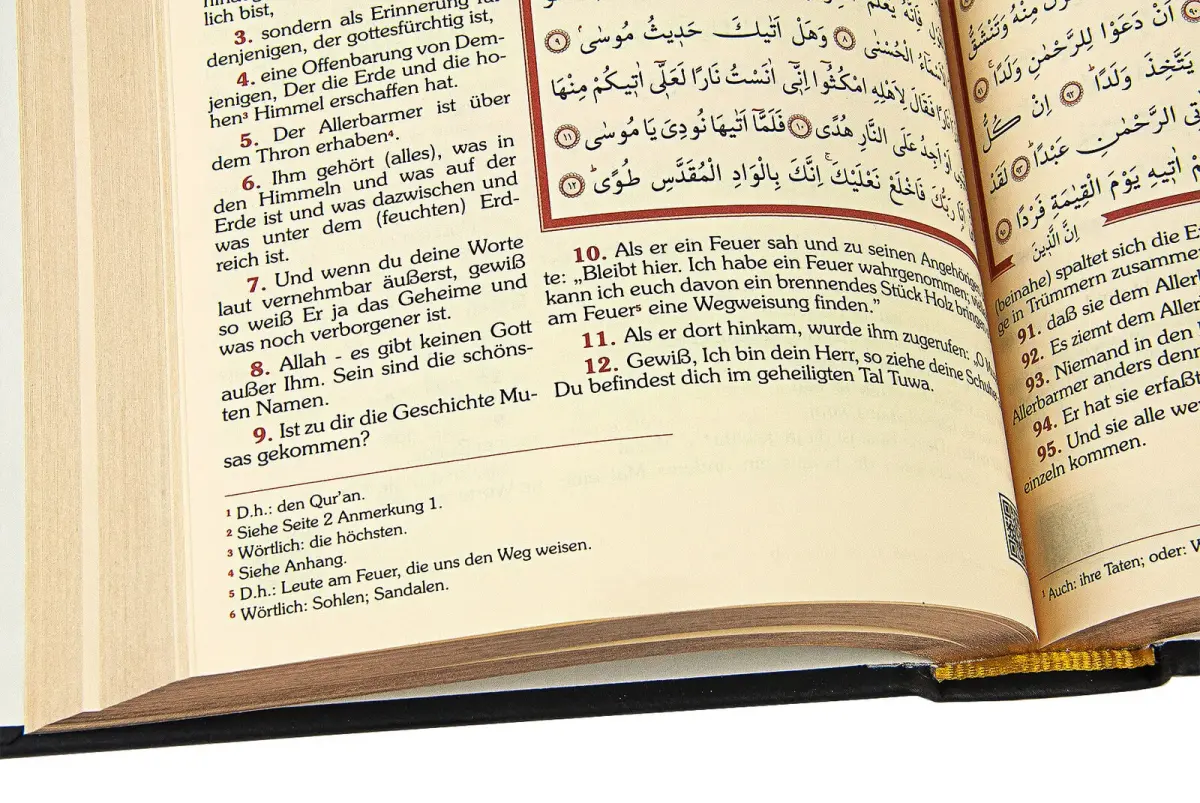 lich bist,
3. sondern als Erinnerung für
denjenigen, der gottesfürchtig ist,
4. eine Offenbarung von Dem-
jenigen, Der die Erde und die ho-
hen³ Himmel erschaffen hat.
5. Der Allerbarmer ist über
dem Thron erhaben⁴.
6. Ihm gehört (alles), was in
den Himmeln und was auf der
Erde ist und was dazwischen und
was unter dem (feuchten) Erd-
reich ist.
7. Und wenn du deine Worte
laut vernehmbar äußerst, gewiß
so weiß Er ja das Geheime und
was noch verborgener ist.
8. Allah - es gibt keinen Gott
außer Ihm. Sein sind die schöns-
ten Namen.
9. Ist zu dir die Geschichte Mu-
sas gekommen?
فَاِنَّهُ يَعْلَمُ
الْاَسْمَٓاءُ الْحُسْنٰى ﴿٨﴾ وَهَلْ اَتٰيكَ حَد۪يثُ مُوسٰى ﴿٩﴾
نَارًا فَقَالَ لِاَهْلِهِ امْكُثُٓوا اِنّ۪ٓي اٰنَسْتُ نَارًا لَعَلّ۪ٓي اٰت۪يكُمْ مِنْهَا
اَوْ اَجِدُ عَلَى النَّارِ هُدًى ﴿١٠﴾ فَلَمَّٓا اَتٰيهَا نُودِيَ يَا مُوسٰى ﴿١١﴾
رَبُّكَ فَاخْلَعْ نَعْلَيْكَۚ اِنَّكَ بِالْوَادِ الْمُقَدَّسِ طُوًىۜ ﴿١٢﴾
10. Als er ein Feuer sah und zu seinen Angehörigen
te: „Bleibt hier. Ich habe ein Feuer wahrgenommen;
kann ich euch davon ein brennendes Stück Holz bringen
am Feuer⁵ eine Wegweisung finden.”
11. Als er dort hinkam, wurde ihm zugerufen: „O
12. Gewiß, Ich bin dein Herr, so ziehe deine Schuhe
Du befindest dich im geheiligten Tal Tuwa.
¹ D.h.: den Qur’an.
² Siehe Seite 2 Anmerkung 1.
³ Wörtlich: die höchsten.
⁴ Siehe Anhang.
⁵ D.h.: Leute am Feuer, die uns den Weg weisen.
⁶ Wörtlich: Sohlen; Sandalen.
مِنْهُ وَتَنْشَقُّ
اَنْ دَعَوْا لِلرَّحْمٰنِ وَلَدًاۚ ﴿٩١﴾
يَتَّخِذَ وَلَدًاۜ ﴿٩٢﴾ اِنْ كُلُّ
الرَّحْمٰنِ عَبْدًاۜ ﴿٩٣﴾ لَقَدْ
اٰت۪يهِ يَوْمَ الْقِيٰمَةِ فَرْدًا ﴿٩٥﴾
اِنَّ الَّذ۪ينَ
(beinahe) spaltet sich die
ge in Trümmern
91. daß sie dem
92. Es ziemt dem
93. Niemand in den
Allerbarmer anders
94. Er hat sie erfaßt
95. Und sie alle
einzeln kommen.
¹ Auch: ihre Taten; oder: